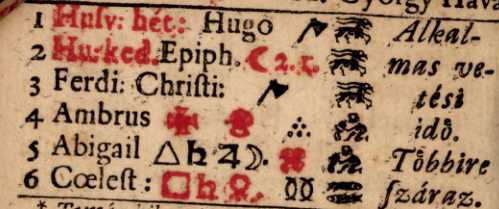 György Háva
1 Husv: hét: Hugo Alkal-
2 Hu: ked. Epiph. ☾ 2. r. mas ve-
3 Ferdi: Christi: tési
4 Ambrus idő.
5 Abigail △ ♄ ♃ ☽. Többire
6 Cœlest: □ ♄ száraz.